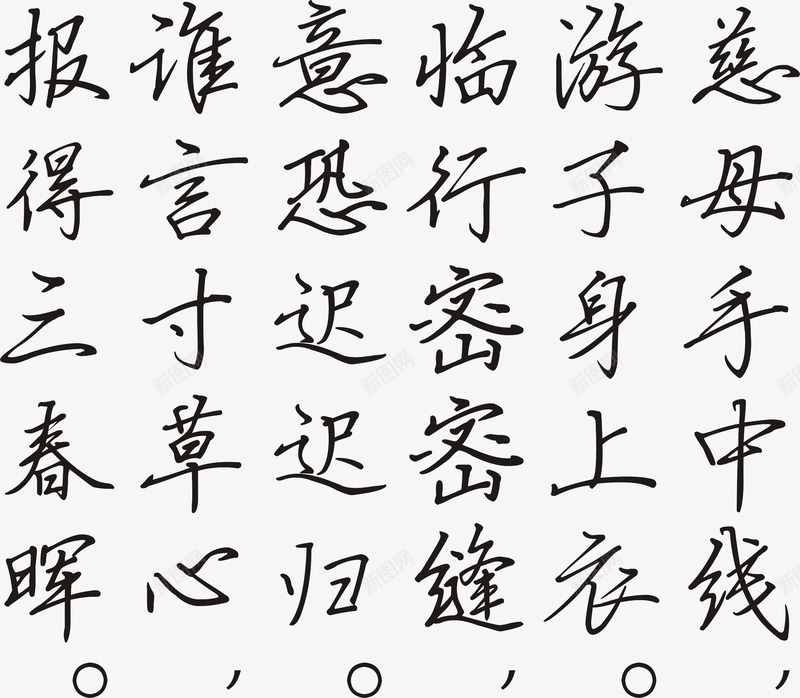 慈母手中线，
游子身上衣。
临行密密缝，
意恐迟迟归。
谁言寸草心，
报得三春晖。